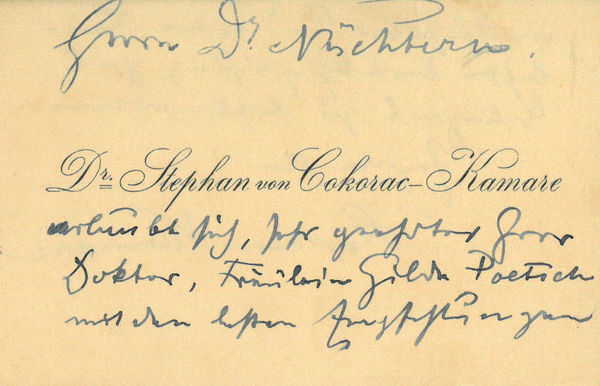 Herrn Dr. Nüchtern.
Dr. Stephan von Cokorac-Kamare
erlaubt sich, sehr geehrter Herr
Doktor, Fräulein Gilda Poetsch
mit den besten Empfehlungen